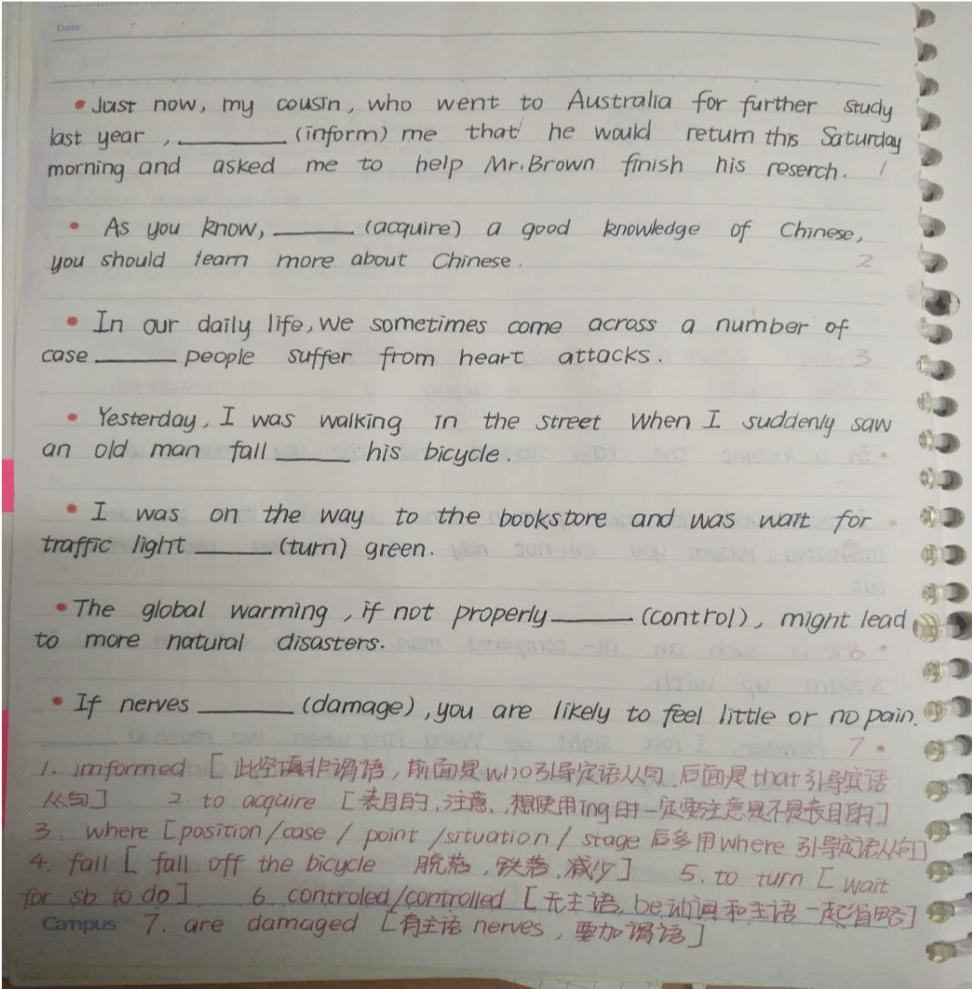 Date
• Just now, my cousin, who went to Australia for further study
last year, ______ (inform) me that he would return this Saturday
morning and asked me to help Mr.Brown finish his reserch. 1
• As you know, ______ (acquire) a good knowledge of Chinese,
you should learn more about Chinese. 2
• In our daily life, we sometimes come across a number of
case ______ people suffer from heart attacks. 3
• Yesterday, I was walking in the street when I suddenly saw
an old man fall ______ his bicycle.
• I was on the way to the bookstore and was wait for
traffic light ______ (turn) green.
• The global warming, if not properly ______ (control), might lead
to more natural disasters.
• If nerves ______ (damage), you are likely to feel little or no pain.
1. imformed [此空填非谓语,前面是who引导定语从句,后面是that引导宾语
从句] 2 to acquire [表目的,注意、想使用ing时一定要注意是不是表目的]
3. where [position/case/point/situation/stage后多用where引导定语从句]
4. fall [fall off the bicycle 脱落,跌落,减少] 5. to turn [wait
for sb to do] 6. controled/controlled [无主语,be动词和主语一起省略]
Campus 7. are damaged [有主语nerves,要加谓语]